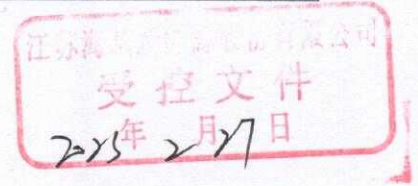 江苏海 股份有限公司
受控文件
2025年2月27日